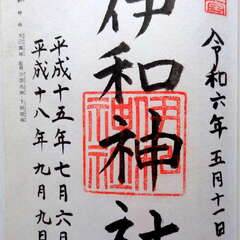 令和六年五月十一日
伊和神社
平成十五年七月六日
平成十八年九月九日